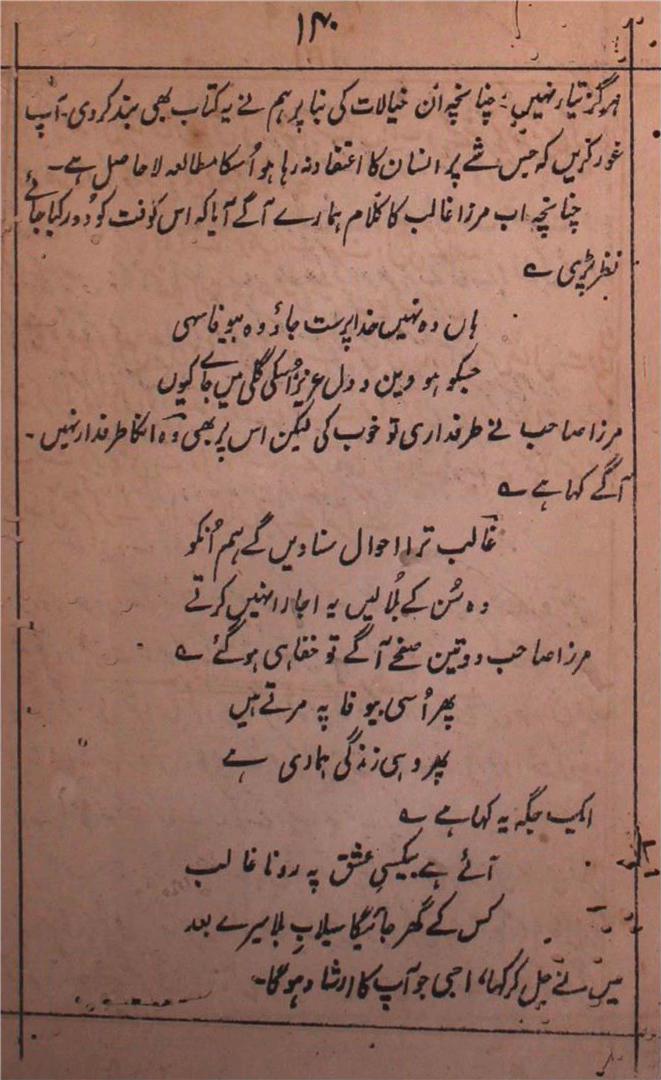 ۱۴۰
ہرگز تیار نہیں؛ چنانچہ ان خیالات کی بنا پر ہم نے یہ کتاب بھی بند کر دی۔ آپ
غور کریں کہ جس شے پر انسان کا اعتقاد نہ رہا ہو اُسکا مطالعہ لا حاصل ہے۔
چنانچہ اب مرزا غالب کا کلام ہمارے آگے آیا کہ اس کوفت کو دُور کیا جائے
نظر پڑی ؎
ہاں وہ نہیں خدا پرست جاؤ وہ بیوفا سہی
جسکو ہو دین و دل عزیز اُسکی گلی میں جائے کیوں
مرزا صاحب نے طرفداری تو خوب کی لیکن اس پر بھی وہ انکا طرفدار نہیں۔
آگے کہا ہے ؎
غالب ترا احوال سنا دیں گے ہم اُنکو
وہ سُن کے بُلا لیں یہ اجارا نہیں کرتے
مرزا صاحب دو تین صفحے آگے تو خفا ہی ہو گئے ؎
پھر اُسی بیوفا پہ مرتے ہیں
پھر وہی زندگی ہماری ہے
ایک جگہ یہ کہا ہے ؎
آئے ہے بیکسیِ عشق پہ رونا غالب
کس کے گھر جائیگا سیلابِ بلا میرے بعد
میں نے جل کر کہا، اجی جو آپ کا ارشاد ہوگا۔